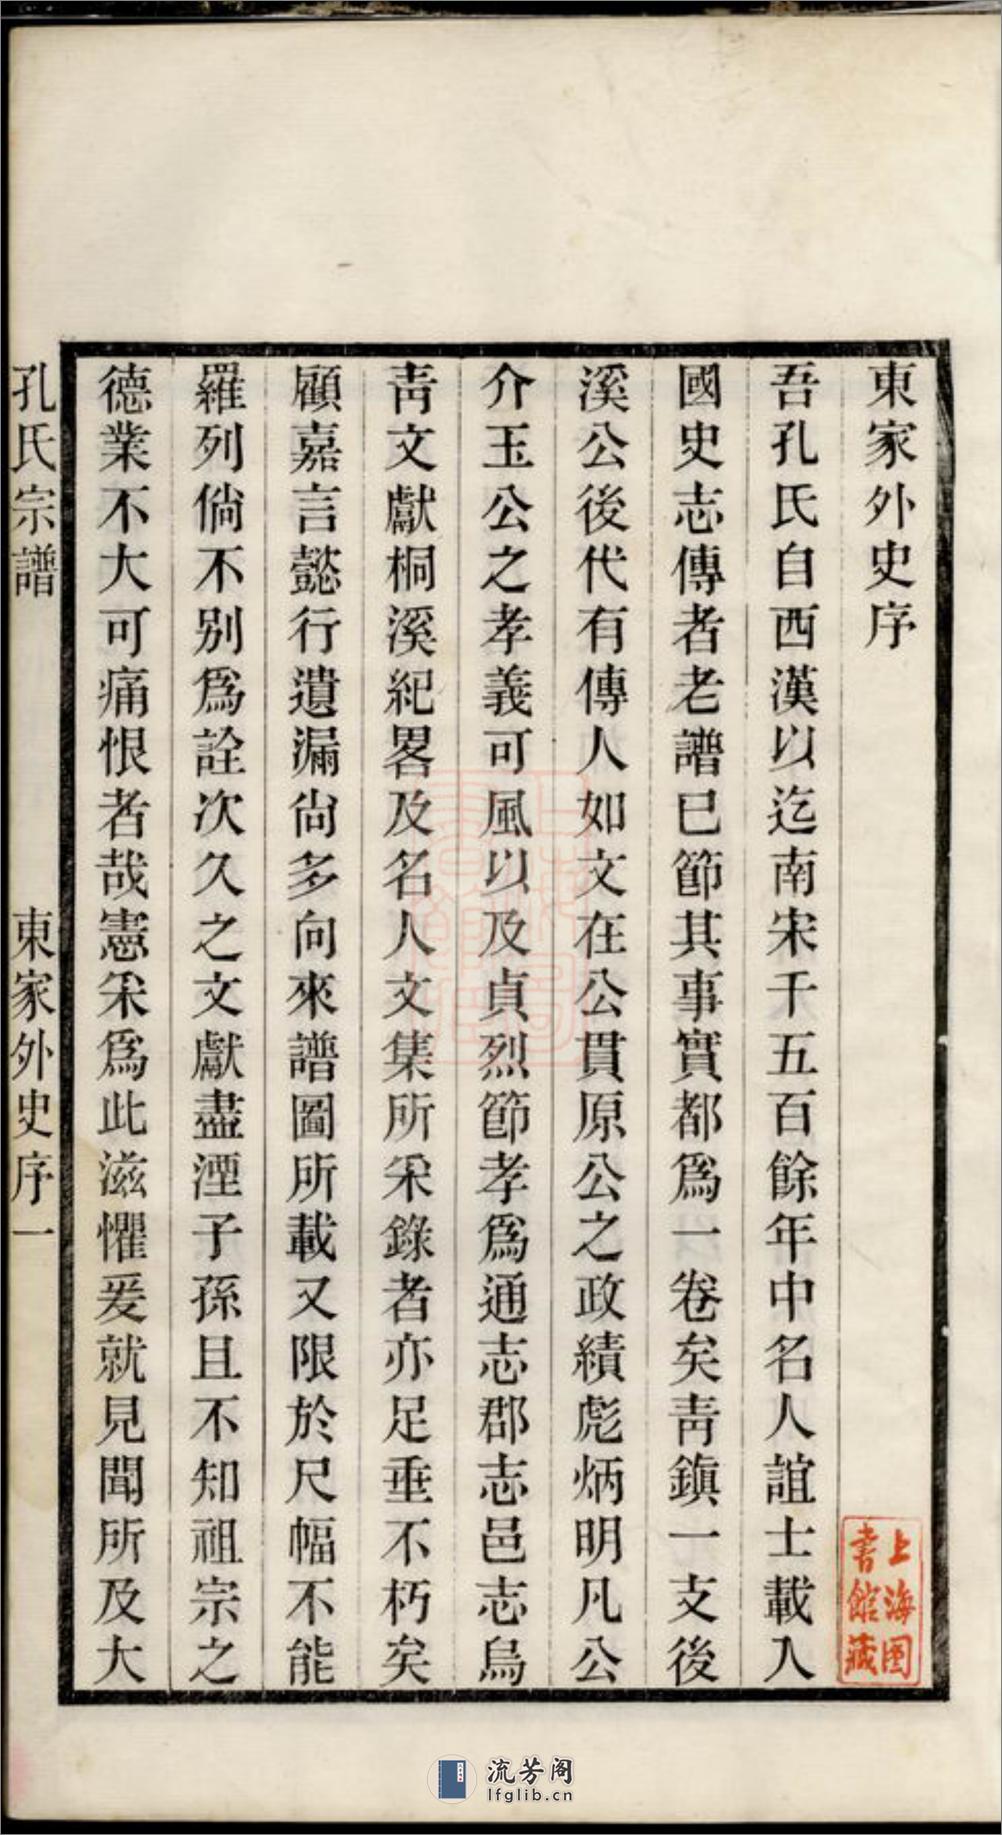 東家外史序
吾孔氏自西漢以迄南宋千五百餘年中名人誼士載入
國史志傳者老譜已節其事實都爲一卷矣靑鎭一支後
溪公後代有傳人如文在公貫原公之政績彪炳明凡公
介玉公之孝義可風以及貞烈節孝爲通志郡志邑志烏
靑文獻桐溪紀畧及名人文集所采錄者亦足垂不朽矣
顧嘉言懿行遺漏尙多向來譜圖所載又限於尺幅不能
羅列倘不別爲詮次久之文獻盡湮子孫且不知祖宗之
德業不大可痛恨者哉憲采爲此滋懼爰就見聞所及大
孔氏宗譜　東家外史序一
上海圖書館藏
流芳阁
lfglib.cn